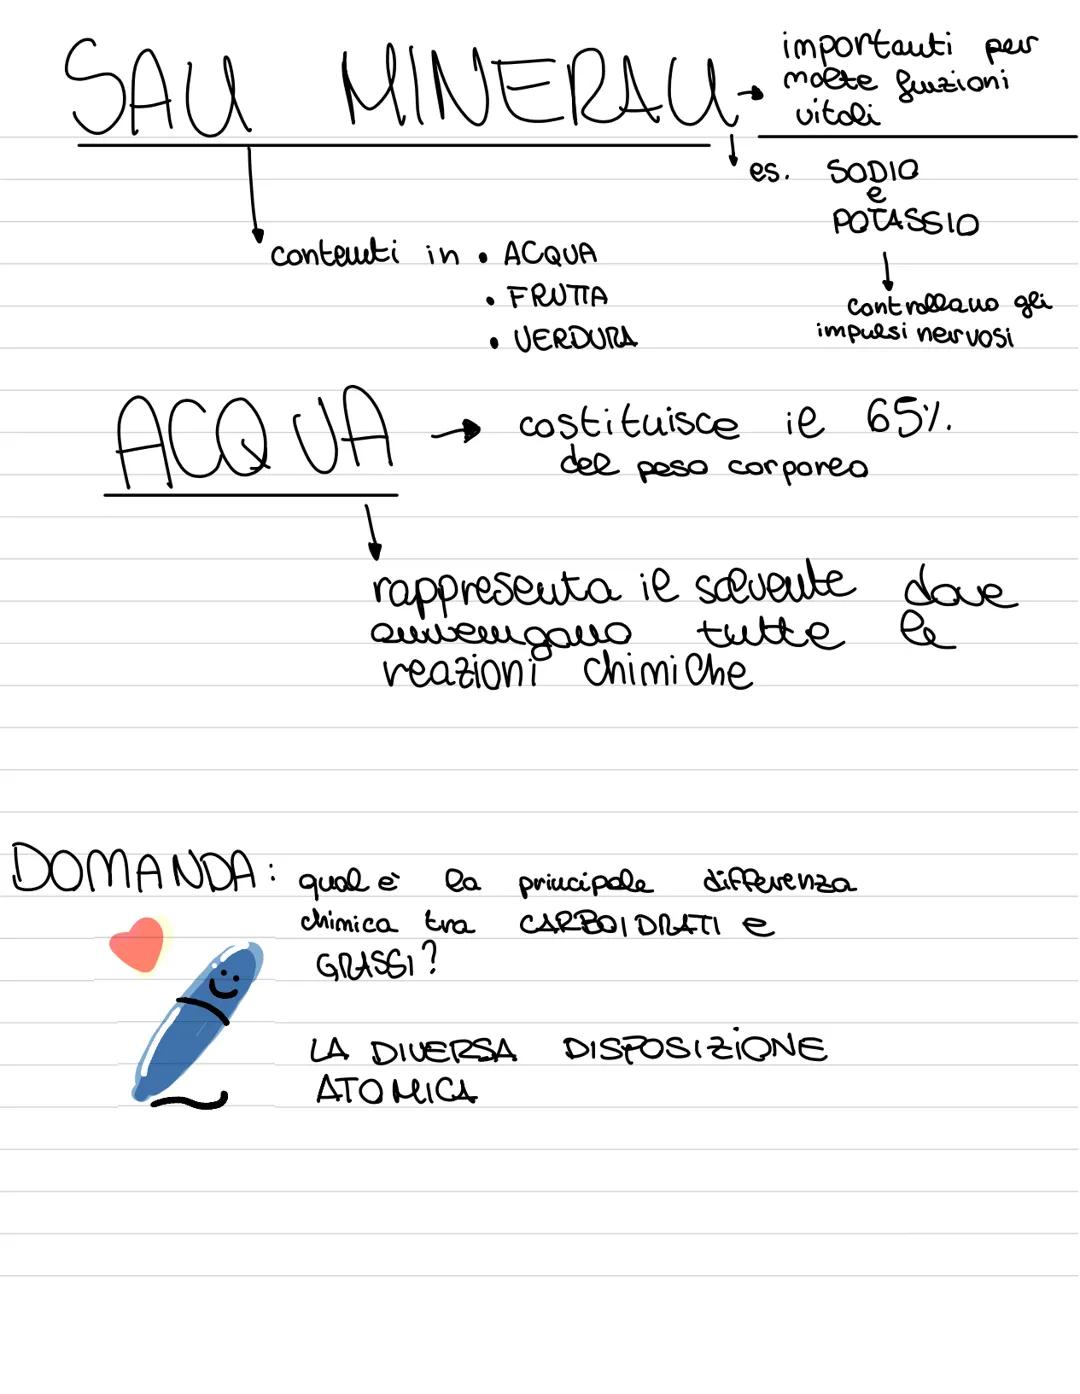 SALI MINERALI
importanti per
molte funzioni
vitali
es. SODIO
e
POTASSIO
controllano gli
impulsi nervosi
contenuti in • ACQUA
• FRUTTA
• VERDURA
ACQUA
costituisce il 65%
del peso corporeo
rappresenta il solvente dove
avvengano tutte le
reazioni chimiche
DOMANDA: qual è la principale differenza
chimica tra CARBOIDRATI e
GRASSI?
LA DIVERSA DISPOSIZIONE
ATOMICA